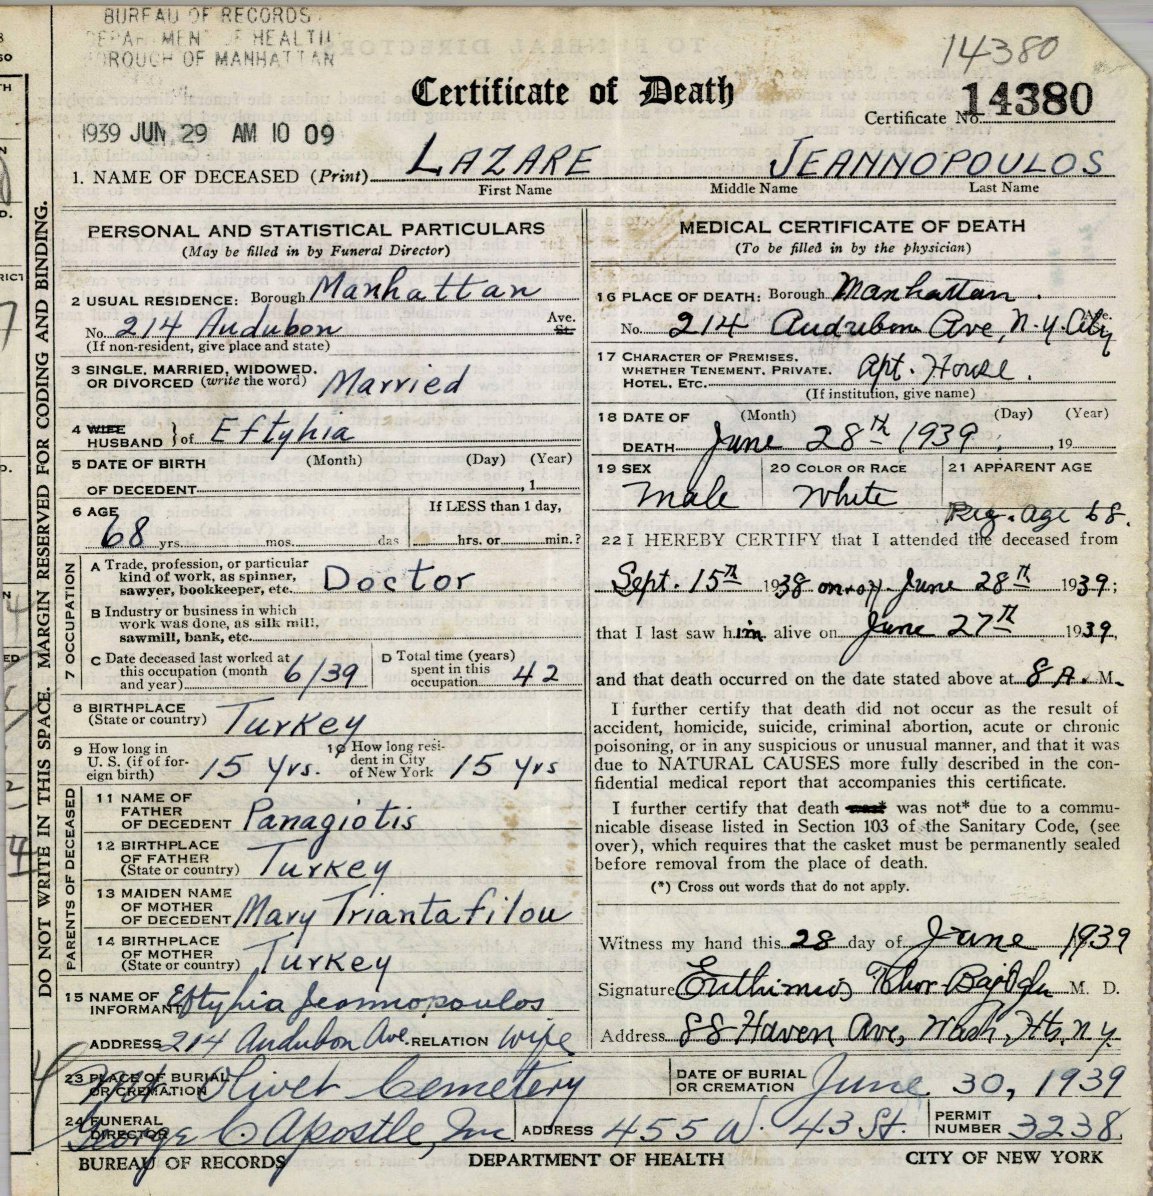 BUREAU OF RECORDS
DEPARTMENT OF HEALTH
BOROUGH OF MANHATTAN
14380
Certificate of Death
Certificate No. 14380
1939 JUN 29 AM 10 09
1. NAME OF DECEASED (Print) LAZARE JEANNOPOULOS
First Name Middle Name Last Name
DO NOT WRITE IN THIS SPACE. MARGIN RESERVED FOR CODING AND BINDING.
PERSONAL AND STATISTICAL PARTICULARS
(May be filled in by Funeral Director)
2 USUAL RESIDENCE: Borough Manhattan
No. 214 Audubon Ave. St.
(If non-resident, give place and state)
3 SINGLE, MARRIED, WIDOWED,
OR DIVORCED (write the word) Married
4 WIFE
HUSBAND } of Eftyhia
5 DATE OF BIRTH (Month) (Day) (Year)
OF DECEDENT , 1
6 AGE If LESS than 1 day,
68 yrs. mos. das hrs. or min.?
7 OCCUPATION
A Trade, profession, or particular
kind of work, as spinner,
sawyer, bookkeeper, etc. Doctor
B Industry or business in which
work was done, as silk mill,
sawmill, bank, etc.
C Date deceased last worked at
this occupation (month
and year) 6/39
D Total time (years)
spent in this
occupation 42
8 BIRTHPLACE
(State or country) Turkey
9 How long in
U. S. (if of for-
eign birth) 15 yrs.
10 How long resi-
dent in City
of New York 15 yrs
PARENTS OF DECEASED
11 NAME OF
FATHER
OF DECEDENT Panagiotis
12 BIRTHPLACE
OF FATHER
(State or country) Turkey
13 MAIDEN NAME
OF MOTHER
OF DECEDENT Mary Triantafilou
14 BIRTHPLACE
OF MOTHER
(State or country) Turkey
15 NAME OF
INFORMANT Eftyhia Jeannopoulos
ADDRESS 214 Audubon Ave. RELATION wife
MEDICAL CERTIFICATE OF DEATH
(To be filled in by the physician)
16 PLACE OF DEATH: Borough Manhattan.
No. 214 Audubon Ave, N.Y. City Ave.
17 CHARACTER OF PREMISES,
WHETHER TENEMENT, PRIVATE,
HOTEL, ETC. Apt. House.
(If institution, give name)
18 DATE OF (Month) (Day) (Year)
DEATH June 28th 1939 , 19
19 SEX Male
20 COLOR OR RACE White
21 APPARENT AGE
Reg. age 68.
22 I HEREBY CERTIFY that I attended the deceased from
Sept. 15th 1938 on & off June 28th 1939;
that I last saw him alive on June 27th 1939,
and that death occurred on the date stated above at 8 A. M.
I further certify that death did not occur as the result of
accident, homicide, suicide, criminal abortion, acute or chronic
poisoning, or in any suspicious or unusual manner, and that it was
due to NATURAL CAUSES more fully described in the con-
fidential medical report that accompanies this certificate.
I further certify that death was not* due to a commu-
nicable disease listed in Section 103 of the Sanitary Code, (see
over), which requires that the casket must be permanently sealed
before removal from the place of death.
(*) Cross out words that do not apply.
Witness my hand this 28 day of June 1939
Signature Euthimios M. D.
Address 88 Haven Ave, Wash. Hts. N.Y.
23 PLACE OF BURIAL
OR CREMATION Mt. Olivet Cemetery
DATE OF BURIAL
OR CREMATION June 30, 1939
24 FUNERAL
DIRECTOR George C Apostle, Inc
ADDRESS 455 W. 43 St.
PERMIT
NUMBER 3238
BUREAU OF RECORDS DEPARTMENT OF HEALTH CITY OF NEW YORK